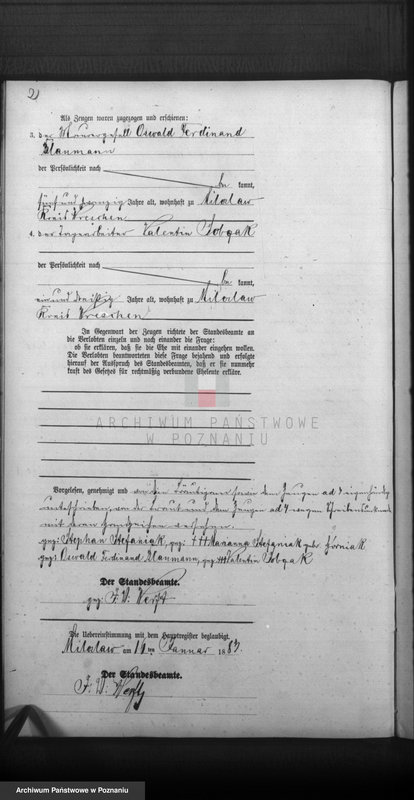 2
Als Zeugen waren zugezogen und erschienen:
3. der Maurergesell Oswald Ferdinand
Naumann
der Persönlichkeit nach
be kannt,
fünf und zwanzig Jahre alt, wohnhaft zu Miloslaw
Kreis Wreschen
4. der Valentin Sobczak
der Persönlichkeit nach
be kannt,
ein und dreißig Jahre alt, wohnhaft zu Miloslaw
Kreis Wreschen
In Gegenwart der Zeugen richtete der Standesbeamte an
die Verlobten einzeln und nach einander die Frage:
ob sie erklären, daß sie die Ehe mit einander eingehen wollen.
Die Verlobten beantworteten diese Frage bejahend und erfolgte
hierauf der Ausspruch des Standesbeamten, daß er sie nunmehr
kraft des Gesetzes für rechtmäßig verbundene Eheleute erkläre.
ARCHIWUM PAŃSTWOWE
W POZNANIU
Vorgelesen, genehmigt und von dem Bräutigam sowie dem Zeugen ad 3 eigenhändig
unterschrieben, von der Braut und dem Zeugen ad 4 wegen
mit ihren Handzeichen versehen.
gez: Stephan Stefaniak, gez: +++ Marianna Stefaniak geb. Górniak
gez: Oswald Ferdinand Naumann, gez +++ Valentin Sobczak
Der Standesbeamte.
gez: F. W.
Die Uebereinstimmung mit dem Hauptregister beglaubigt.
Miloslaw am ten Januar 188
Der Standesbeamte.
F. W.
Archiwum Państwowe w Poznaniu